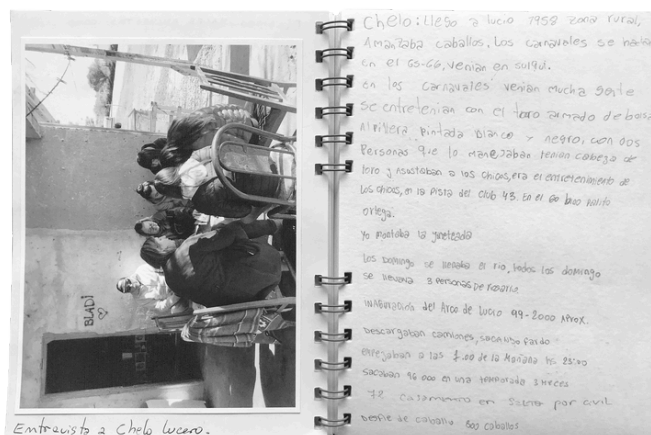 BLADI
Entrevista a Chelo Lucero.
Chelo: Llego a lucio 1958 zona rural,
Amanzaba caballos. Los carnavales se hacian
en el 65-66, venian en sulqui.
en los carnavales venian mucha gente
se entretenian con el toro armado de bolsa
Alpillera pintada blanco y negro, con dos
Personas que lo manejaban tenian cabeza de
toro y asustaban a los chicos, era el entretenimiento de
los chicos, en la pista del club 43. En el 60 vino Palito
ortega.
Yo montaba la jineteada
los domingo se llenaba el rio, todos los domingo
se llevaba 3 personas de rosario
INAguración del Arco de Lucio 99-2000 Aprox.
Descargaban camiones,
a las 8:00 de la Mañana 23:00
sacaban 96 000 en una temporada 3 meces
72 casamiento en por civil
Desfile de caballo 800 caballos